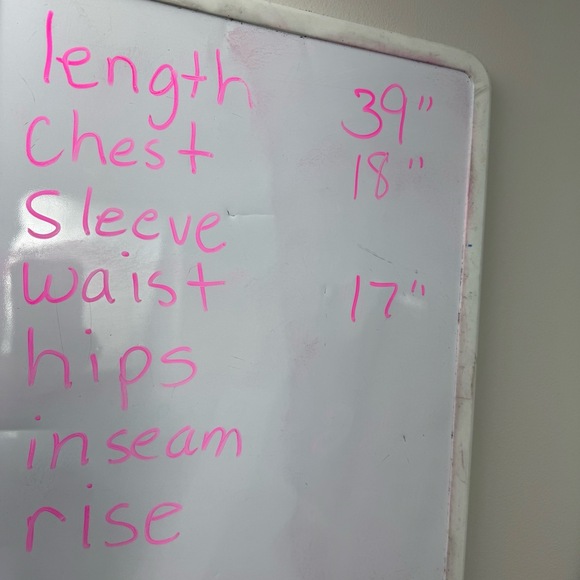 length 39"
Chest 18"
Sleeve
waist 17"
hips
inseam
rise